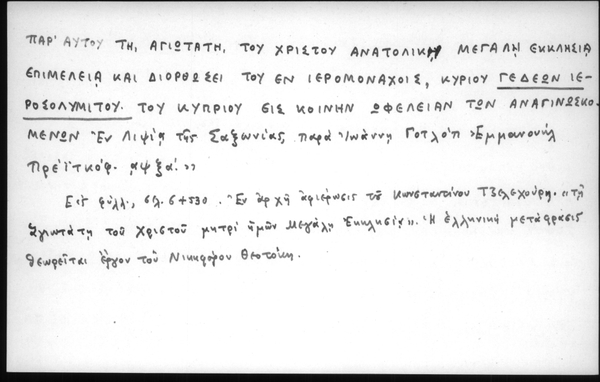 ΠΑΡ' ΑΥΤΟΥ ΤΗ, ΑΓΙΩΤΑΤΗ, ΤΟΥ ΧΡΙΣΤΟΥ ΑΝΑΤΟΛΙΚΗ ΜΕΓΑΛῌ ΕΚΚΛΗΣΙᾼ
ΕΠΙΜΕΛΕΙᾼ ΚΑΙ ΔΙΟΡΘΩΣΕΙ ΤΟΥ ΕΝ ΙΕΡΟΜΟΝΑΧΟΙΣ, ΚΥΡΙΟΥ ΓΕΔΕΩΝ ΙΕ-
ΡΟΣΟΛΥΜΙΤΟΥ. ΤΟΥ ΚΥΠΡΙΟΥ ΕΙΣ ΚΟΙΝΗΝ ΩΦΕΛΕΙΑΝ ΤΩΝ ΑΝΑΓΙΝΩΣΚΟ-
ΜΕΝΩΝ Ἐν Λιψίᾳ τῆς Σαξωνίας, παρὰ Ἰωάννῃ Γοτλὸπ Ἐμμανουὴλ
Πρέϊτκόφ. ,αψξά.»
Εἰς φύλλ., σελ. 6+530. Ἐν ἀρχῇ ἀφιέρωσις τοῦ Κωνσταντίνου Τζελεχούρη. «τῇ
ἁγιωτάτῃ τοῦ Χριστοῦ μητρὶ ἡμῶν Μεγάλῃ Ἐκκλησίᾳ». Ἡ ἑλληνικὴ μετάφρασις
θεωρεῖται ἔργον τοῦ Νικηφόρου Θεοτόκη.